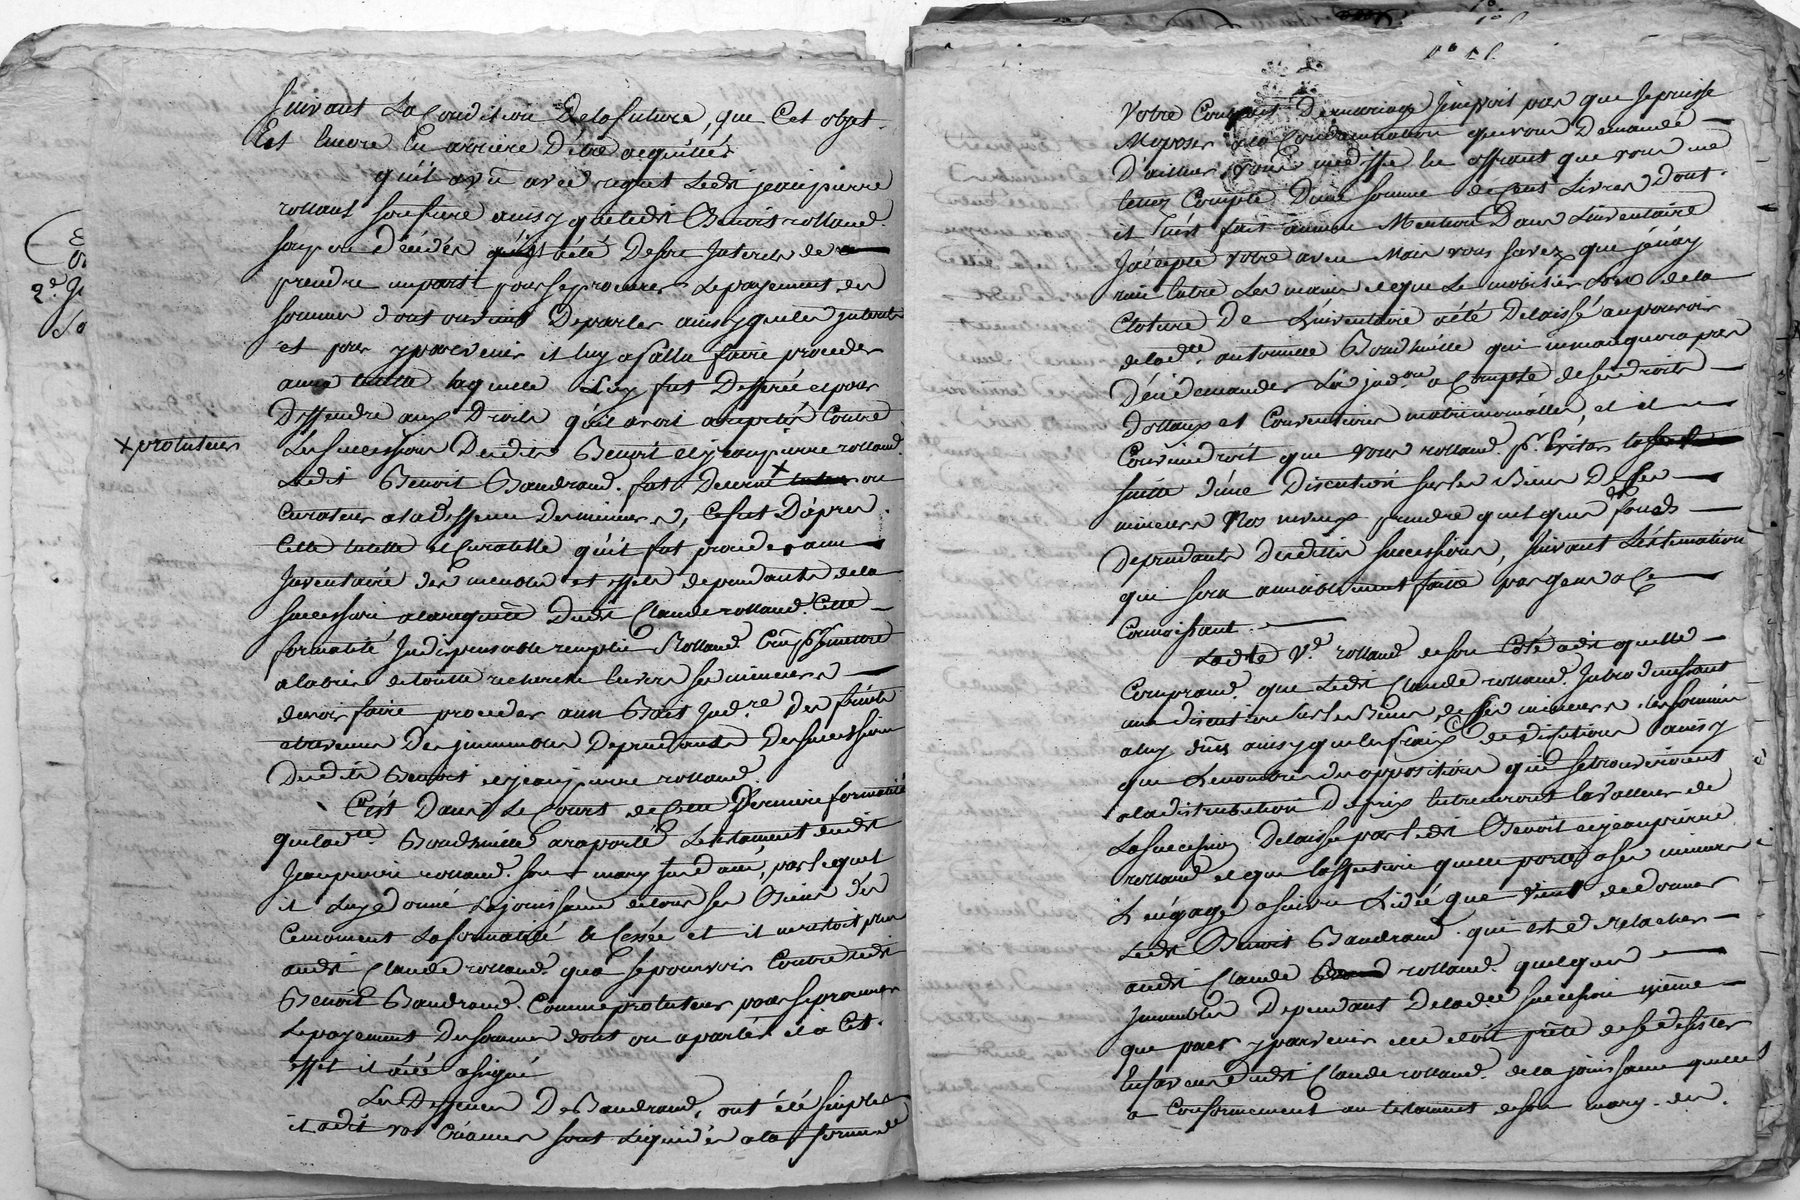 suivant la Condition de la future, que Cet objet
Est Encore En arriere D'être acquitté
qu'il a vû avec regret ledit jean pierre
rolland son frere ainsy que ledit Benoit rolland
son pere décédés qu'il a été De son Interets de
prendre un parti pour se procurer le payement des
sommes dont on vient De parler ainsy que les interets
et pour y parvenir il luy a fallu faire proceder
a une tutelle laquelle luy fut Defferée et pour
Deffendre aux Droits qu'il avoit a repeter Contre
Les successions Desdits Benoit et jean pierre rolland
Ledit Benoit Baudrand fut Devenu × ou
× protuteur
Curateur a la deffense Des mineurs, Ce fut D'après
Cette tutelle et Curatelle qu'il fut procedé a un
Inventaire des meubles et effets dependants de la
succession a la requete Dudit Claude rolland Cette
formalité Indispensable remplie Rolland
a l'abri de toutte recherche Envers ses mineurs
devoir faire proceder a un Bail Jud.re Des fruits
et revenus Des immeubles Dependants Des successions
Desdits Benoit et jean pierre rolland
C'est Dans le Cours de Cette Derniere formalité
que lad.lle a raporté le testament dudit
Jean pierre rolland son mary, par lequel
il luy a Donné la jouissance de tous ses Biens dès
Ce moment la formalité a Cessée et il ne restoit plus
audit Claude rolland qu'a se pourvoir Contre ledit
Benoit Baudrand Comme protuteur pour se procurer
Le payement Des sommes dont on a parlé et a Cet
effet il a été assigné
Les Deffenses De Baudrand, ont été simples
il a dit vos Créances sont liquidées a la forme de
Votre Contrat De mariage Je ne voit pas que Je puisse
M'oposer a la Condamnation que vous Demandé
D'ailleurs vous me dite En offrant que vous me
tenez Compte D'une somme de Cent Livres Dont
il s'est fait aucune Mention Dans L'inventaire
J'accepte votre aveu Mais vous savez que je n'ay
rien Entre Les mains et que Le mobilier lors de la
Cloture De L'inventaire a été Delaissé au pouvoir
de lad.lle antoinette qui ne manquera pas
D'en demander L'adjud.on a Compte de ses droits
Dottaux et Conventions matrimonialles, et il
Conviendroit que vous rolland p.r Eviter la
suitte d'une Discution sur les Biens De ses
mineurs Nos neveux prendre quelques fonds
Dependants Desdittes successions, suivant L'estimation
qui sera amiablement faitte par gens a Ce
Connoissant.
Ladite V.e rolland de son Côté a dit quelle
Comprend que Ledit Claude rolland Introduissant
une discution sur les Biens de ses mineurs, les sommes
a luy dües ainsy que les fraix de discution ainsy
que Le nombre des oppositions qui se trouveroient
a la distribution Du prix Entreneroit la valleur de
La succession Delaissé par ledit Benoit et jean pierre
rolland et que l'affection quelle porte a ses mineurs
L'engage a suivre l'idée que vient de donner
Ledit Benoit Baudrand qui est de relacher
audit Claude rolland quelques
Immeubles Dependant De lad.te succession même
que pour y parvenir elle étoit prête de se desister
En faveur dudit Claude rolland de la jouissance quelle
a Conformement au testament de son mary des